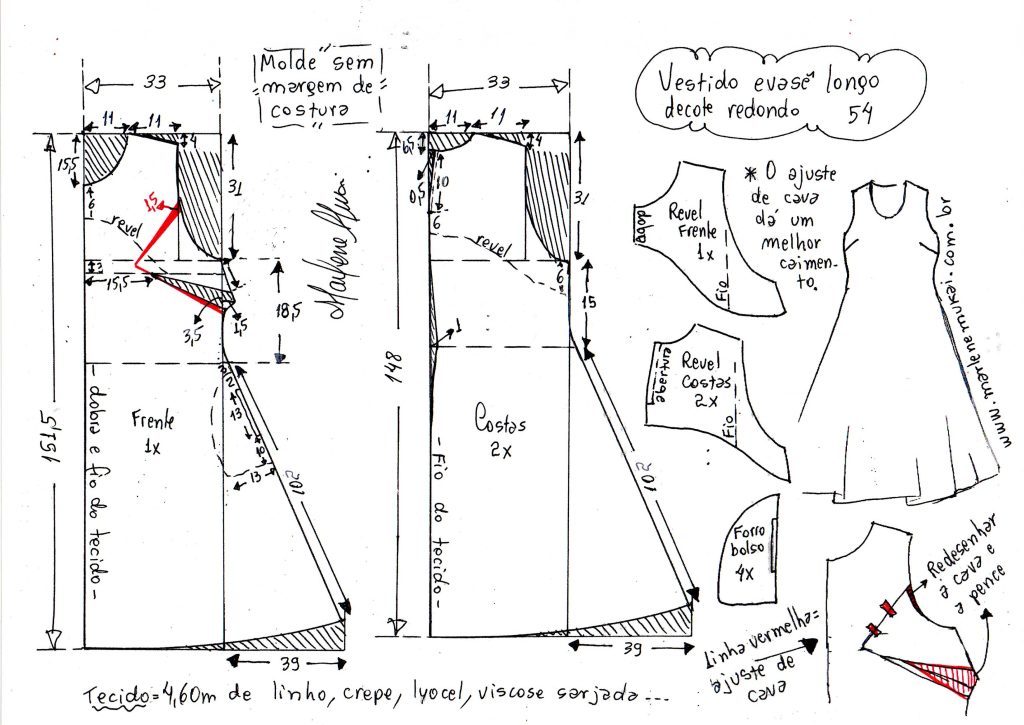 Molde sem
margem de
costura
Vestido evasê longo
decote redondo 54
33
11
11
4
15,5
6
1,5
31
revel
3
15,5
3,5
1,5
18,5
151,5
- dobra e fio do tecido -
Frente
1x
2
13
10
13
102
39
Marlene Mukai
33
11
11
4
0,5
10
6
31
revel
6
15
1
148
Costas
2x
- Fio do tecido -
102
39
dobra
Revel
Frente
1x
Fio
* O ajuste
de cava
dá um
melhor
caimen-
to.
abertura
Revel
Costas
2x
Fio
Forro
bolso
4x
www.marlenemukai.com.br
Redesenhar
a cava e
a pence
Linha vermelha =
ajuste de
cava
Tecido = 4,60m de linho, crepe, lyocel, viscose sarjada...